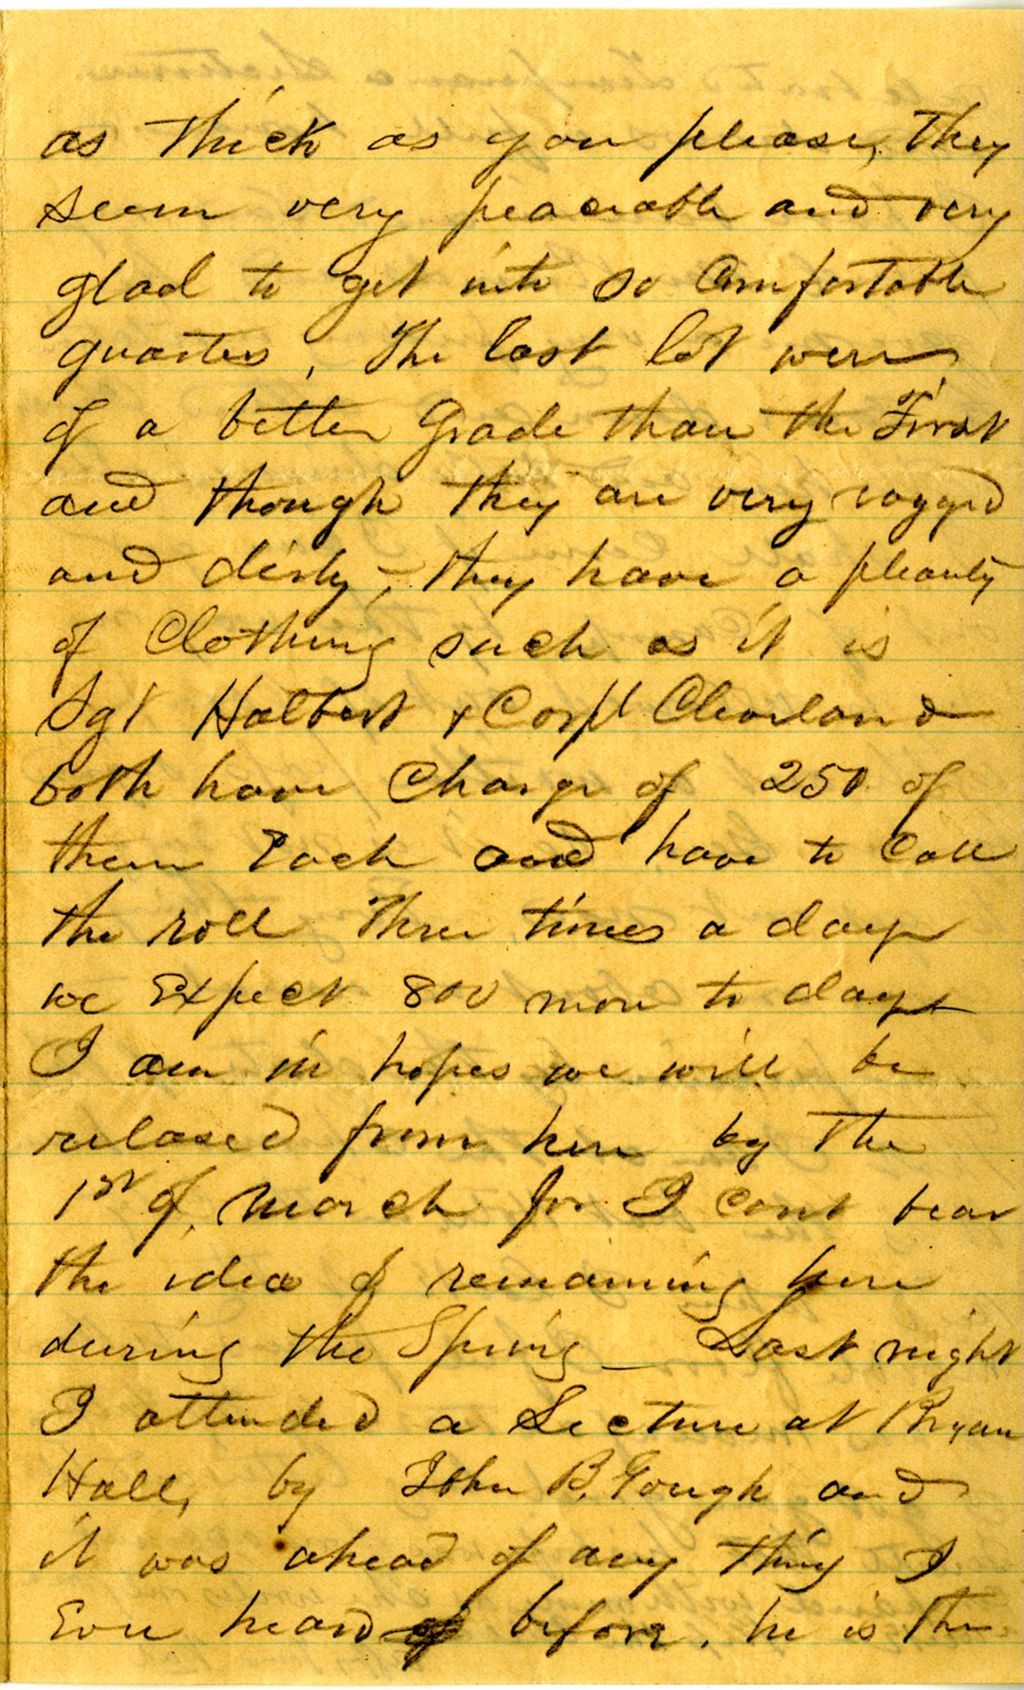 as thick as you please, they
seem very peaceable and very
glad to get into so Comfortable
quarters, The last lot were
of a better Grade than the First
and though they are very ragged
and dirty, they have a pleanty
of Clothing such as it is
Sgt Halbert & Corpl Cleveland
both have Charge of 250 of
them Each and have to Call
the roll Three times a day
we Expect 800 more to day
I am in hopes we will be
relased from here by the
1st of March for I cant bear
the idea of remaining here
during the Spring _ Last night
I attended a Lecture at Bryan
Hall, by John B. Gough and
it was ahead of any thing I
Ever heard before, he is the